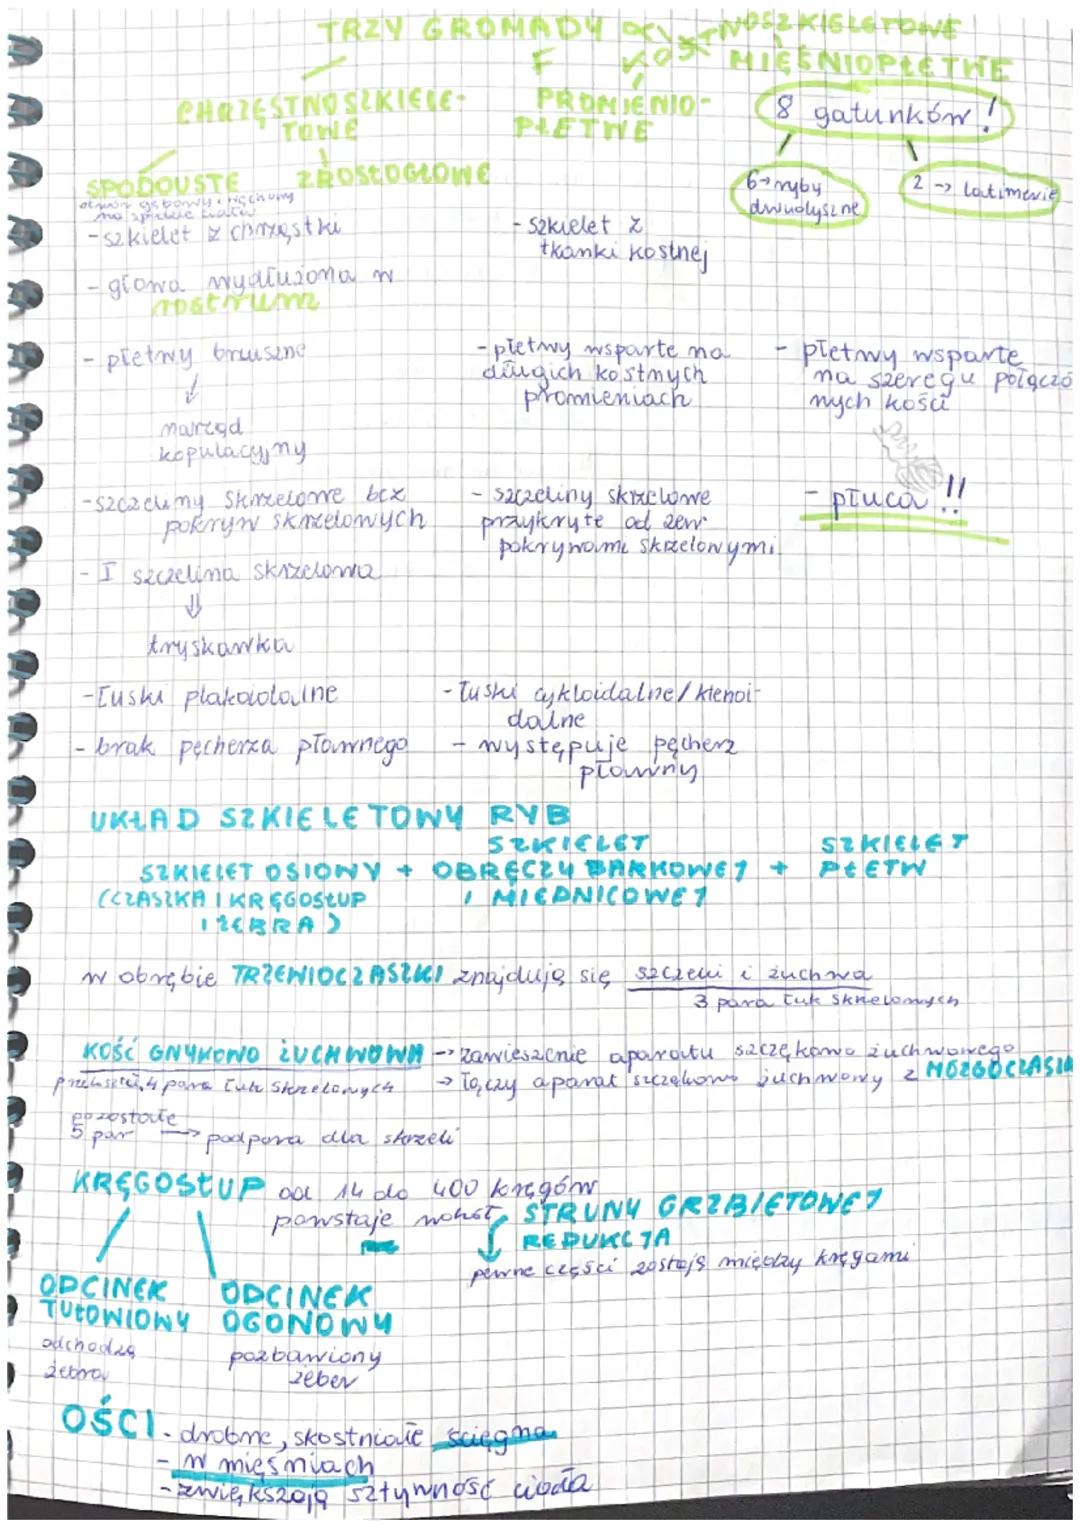 TRZY GROMADY
KOSTNOSZKIELETOWE
CHRZĘSTNOSZKIELE-
TOWE
PROMIENIO-
PŁETWE
MIĘŚNIOPŁETWE
8 gatunków!
6→ryby
dwudyszne
2 → latimerie
SPODOUSTE
ZROSŁOGŁOWE
otwór gębowy i węchowy
na spodzie ciała
-szkielet z chrząstki
- szkielet z
tkanki kostnej
- głowa wydłużona w
rostrum
- płetwy brzuszne
↓
narząd
kopulacyjny
- płetwy wsparte na
długich kostnych
promieniach
- płetwy wsparte
na szeregu połączo
nych kości
-szczeliny skrzelowe bez
pokryw skrzelowych
- szczeliny skrzelowe
przykryte od zew.
pokrywami skrzelowymi
- płuca!!
- I szczelina skrzelowa
⇓
tryskawka
-łuski plakoidalne
-łuski cykloidalne/ktenoi-
dalne
- brak pęcherza pławnego
- występuje pęcherz
pławny
UKŁAD SZKIELETOWY RYB
SZKIELET OSIOWY + 
(CZASZKA I KRĘGOSŁUP
I ŻEBRA)
SZKIELET
OBRĘCZY BARKOWEJ +
I MIEDNICOWEJ
SZKIELET
PŁETW
w obrębie TRZEWIOCZASZKI znajdują się szczęki i żuchwa
3 para łuk skrzelowych
KOŚĆ GNYKOWO ŻUCHWOWA → zawieszenie aparatu szczękowo żuchwowego
4 para łuk skrzelowych → łączy aparat szczękowo żuchwowy z MÓZGOCZASZK
pozostałe
5 par → podpora dla skrzeli
KRĘGOSŁUP od 14 do 400 kręgów
powstaje wokół STRUNY GRZBIETOWEJ
↓ REDUKCJA
pewne części zostają między kręgami
ODCINEK
TUŁOWIOWY
odchodzą
żebra
ODCINEK
OGONOWY
pozbawiony
żeber
OŚCI - drobne, skostniałe ścięgna
- w mięśniach
- zwiększają sztywność ciała